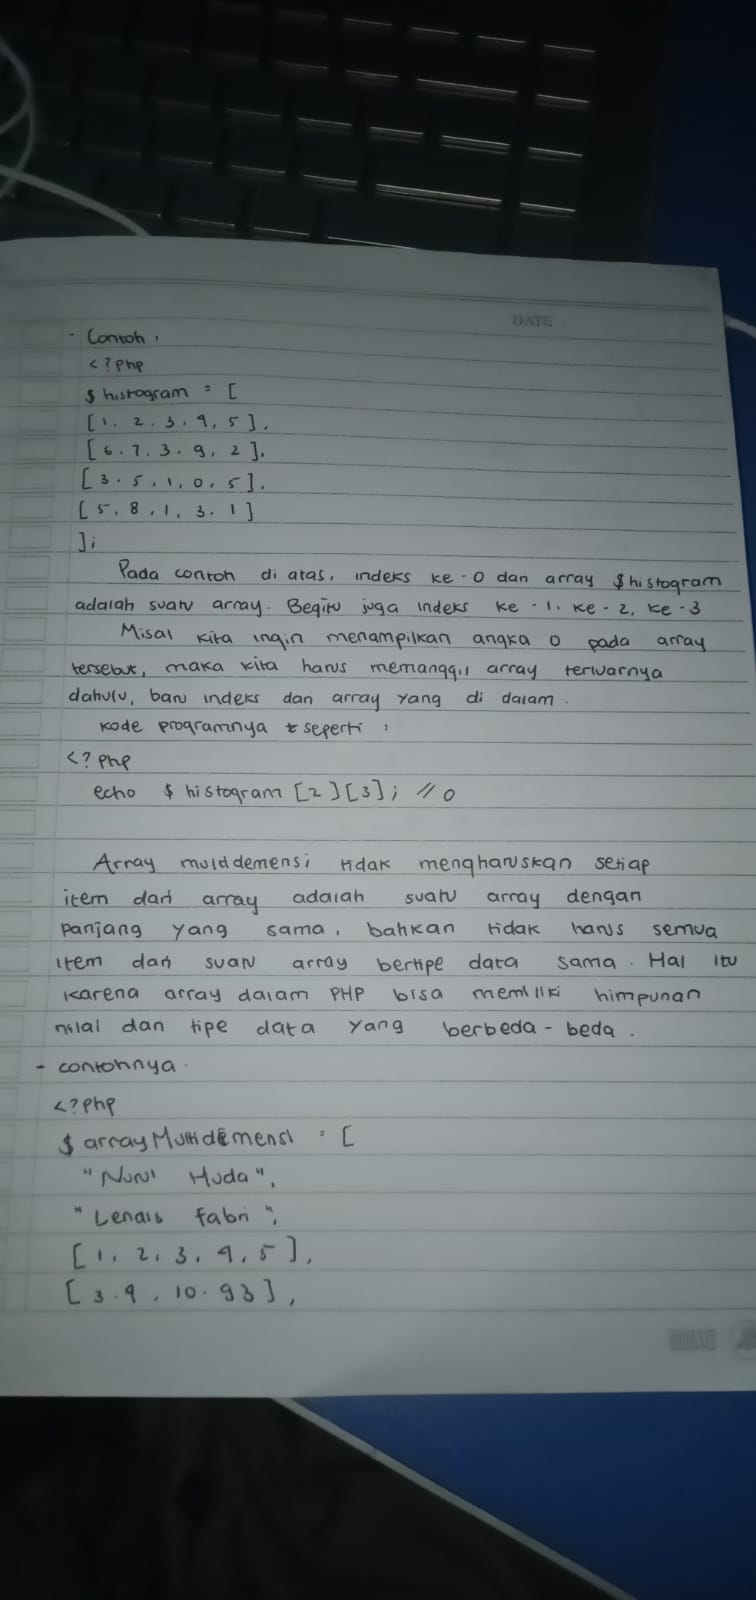 DATE
- Contoh :
<?php
$ histogram = [
[1, 2, 3, 4, 5],
[6, 7, 3, 9, 2],
[3, 5, 1, 0, 5],
[5, 8, 1, 3, 1]
];
Pada contoh di atas, indeks ke-0 dari array $histogram
adalah suatu array. Begitu juga indeks ke-1, ke-2, ke-3
Misal kita ingin menampilkan angka 0 pada array
tersebut, maka kita harus memanggil array terluarnya
dahulu, baru indeks dari array yang di dalam.
Kode programnya seperti :
<?php
echo $ histogram [2][3]; // 0
Array multidemensi tidak mengharuskan setiap
item dari array adalah suatu array dengan
panjang yang sama, bahkan tidak harus semua
item dari suatu array bertipe data sama. Hal itu
karena array dalam PHP bisa memiliki himpunan
nilai dan tipe data yang berbeda-beda.
- contohnya.
<?php
$ arrayMultidemensi = [
"Nurul Huda",
"Lendis Fabri",
[1, 2, 3, 4, 5],
[3.4, 10.93],